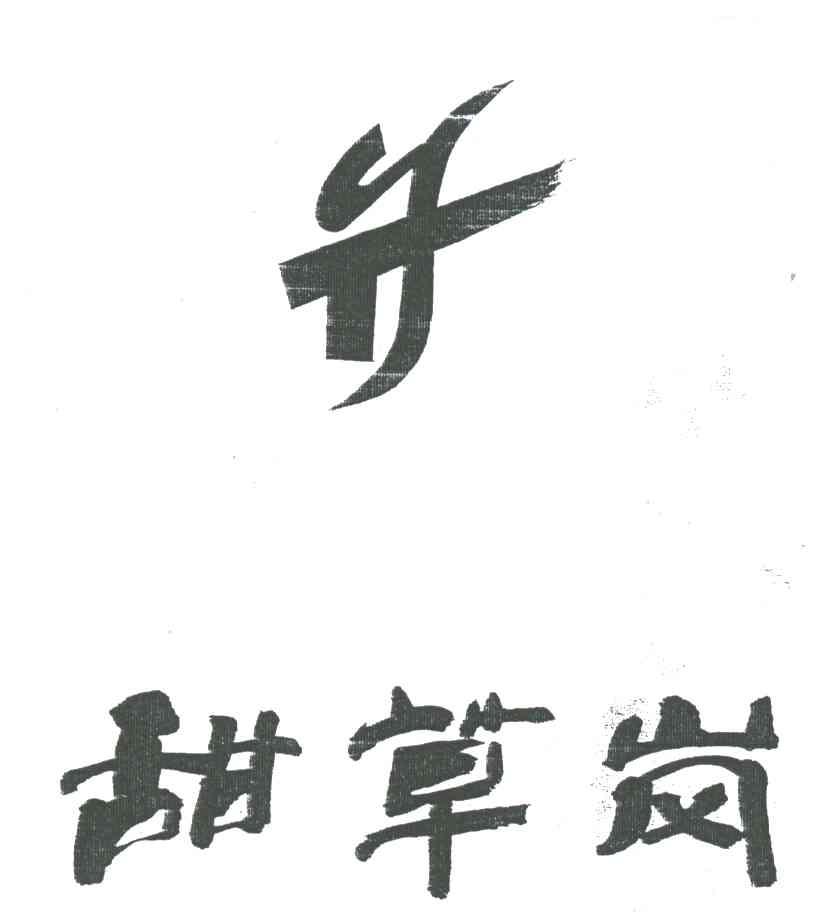 甜草岗